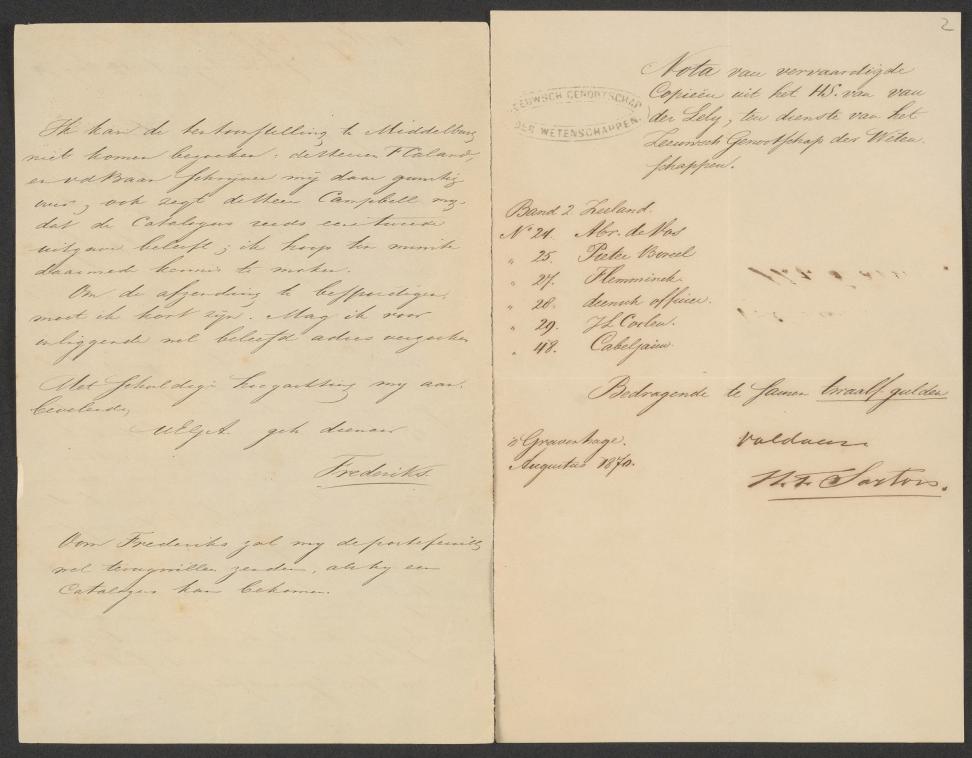 Ik kan de tentoonstelling te Middelburg
niet komen bezoeken. de Heeren F Caland,
en vd Baan schrijven mij daar gunstig
over, ook zegt de Heer Campbell mij
dat de Catalogus reeds eene tweede
uitgave beleeft; ik hoop ten minste
daarmede kennis te maken.
Om de afzending te bespoedigen,
moet ik kort zijn. Mag ik voor
inliggende wel beleefd adres verzoeken
Met schuldige hoogachting mij aan
bevelende,
UEGA. geh dienaar
Frederiks.
Oom Frederiks zal mij de portefeuille
wel terug willen zenden, als hij een
Catalogus kan bekomen.
2
ZEEUWSCH GENOOTSCHAP
DER WETENSCHAPPEN.
Nota van vervaardigde
Copieën uit het HS. van van
der Lely, ten dienste van het
Zeeuwsch Genootschap der Weten
schappen.
Band 2 Zeeland.
No 21. Abr. de Vos
" 25. Pieter Boreel
" 27. Flemminck
" 28. deensch officier.
" 29. J L Corten.
" 48. Cabeljauw.
Bedragende te samen twaalf gulden
's Gravenhage.
Augustus 1870.
Voldaan
H. F. Sartors.